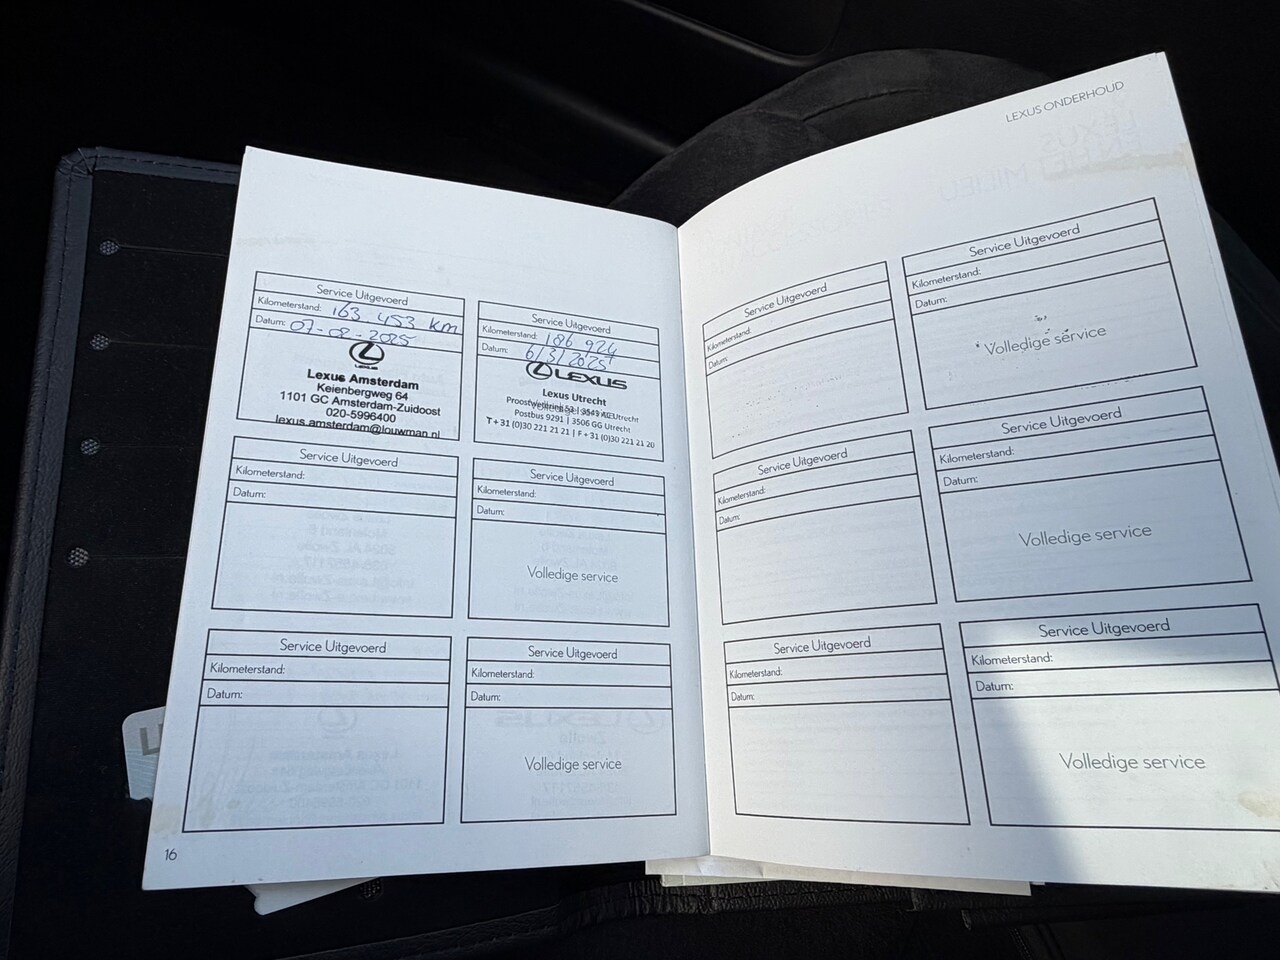 LEXUS ONDERHOUD
Service Uitgevoerd
Kilometerstand: 163 453 km
Datum: 07-02-2025
LEXUS
Lexus Amsterdam
Keienbergweg 64
1101 GC Amsterdam-Zuidoost
020-5996400
lexus.amsterdam@louwman.nl
Service Uitgevoerd
Kilometerstand: 186 924
Datum: 6/3/2025
LEXUS
Lexus Utrecht
Postbus 9291 | 3506 GG Utrecht
T + 31 (0)30 221 21 21 | F + 31 (0)30 221 21 20
Service Uitgevoerd
Kilometerstand:
Datum:
Service Uitgevoerd
Kilometerstand:
Datum:
Volledige service
Service Uitgevoerd
Kilometerstand:
Datum:
Service Uitgevoerd
Kilometerstand:
Datum:
Volledige service
16
Service Uitgevoerd
Kilometerstand:
Datum:
Service Uitgevoerd
Kilometerstand:
Datum:
Volledige service
Service Uitgevoerd
Kilometerstand:
Datum:
Service Uitgevoerd
Kilometerstand:
Datum:
Volledige service
Service Uitgevoerd
Kilometerstand:
Datum:
Service Uitgevoerd
Kilometerstand:
Datum:
Volledige service